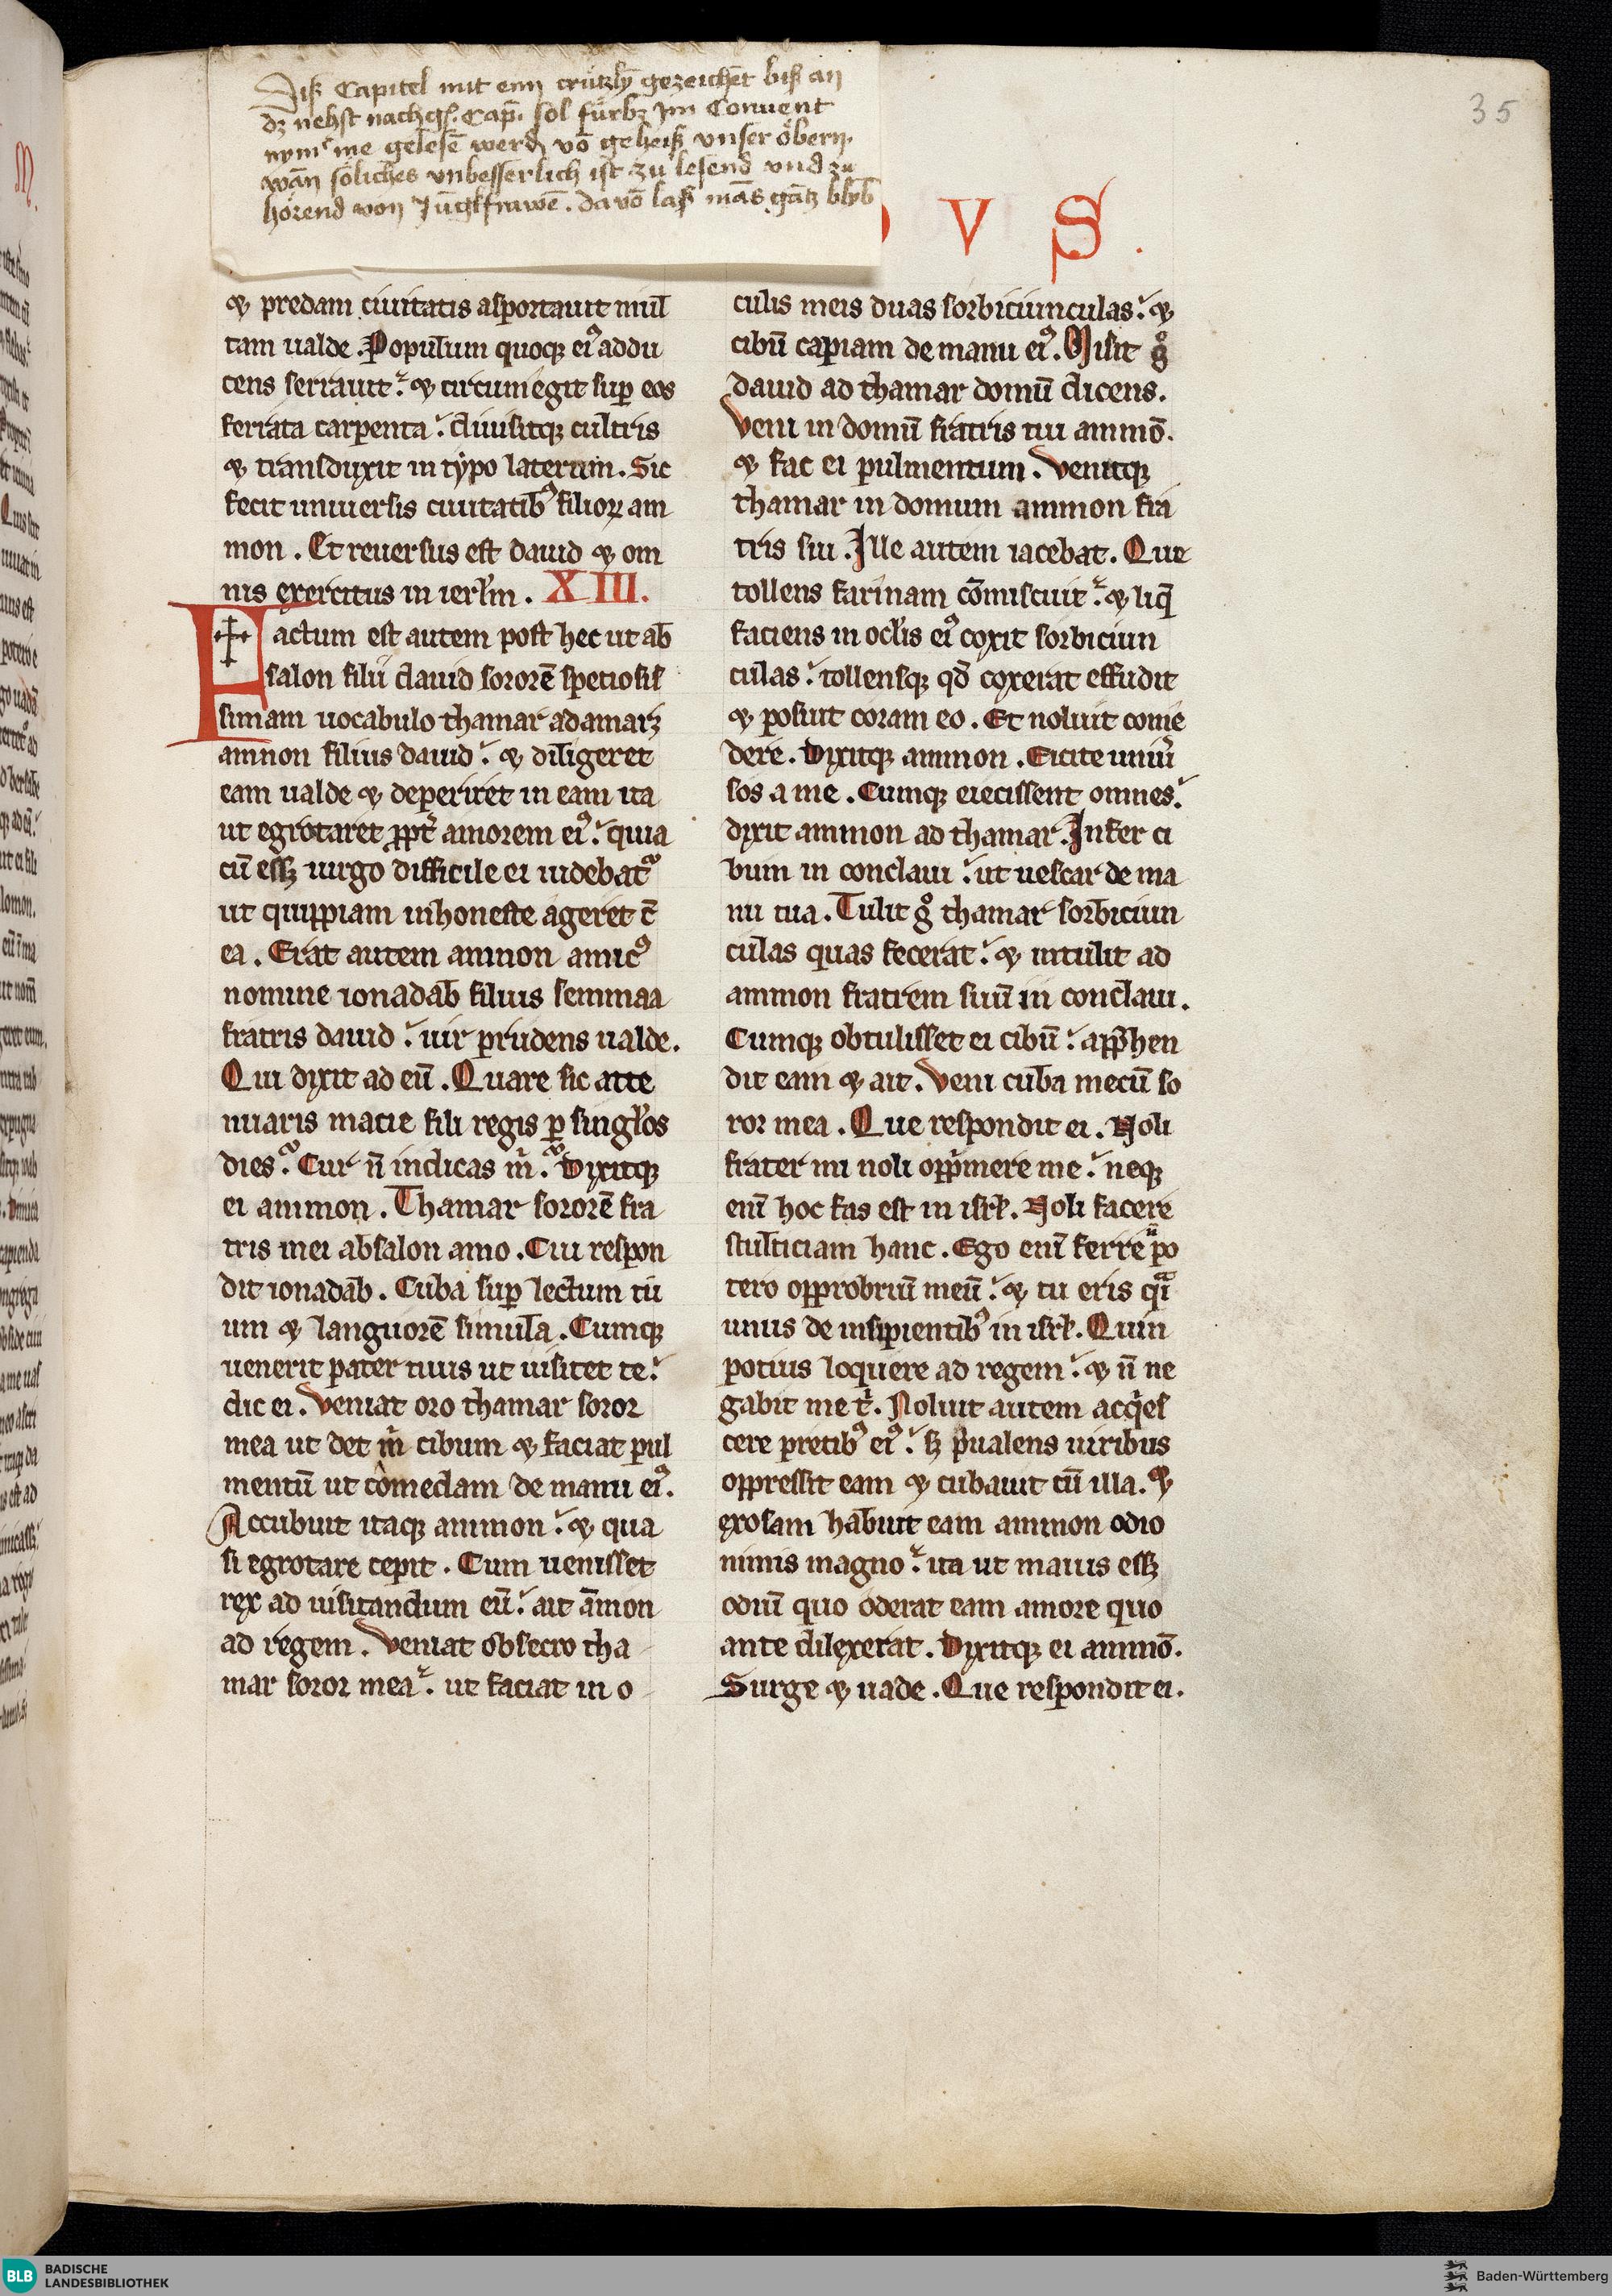 Disz Capitel mit eim crützly̅ gezeichet bisz an
dz nehst nachgs. Cap. sol fürbz Im Conuent
nym̅e me gelese̅ werd vo̅ geheisz vnser öbern.
wa̅n söliches vnbesserlich ist zu̍ lesend vnd zu
hörend von Ju̅gkfrawe̅. da vo̅ lasz ma̅s ga̅tz blyb
35
V S .
⁊ predam ciuitatis asportauit mul
tam ualde . Populum quoq; eiꝰ addu
cens serrauit . ⁊ circumegit suꝑ eos
ferrata carpenta . diuisitq; cultris
⁊ transduxit in typo laterum . Sic
fecit uniuersis ciuitatibꝰ filioꝝ am
mon . Et reuersus est dauid ⁊ om
nis exercitus in ierl̅m . XIII.
Factum est autem post hec ut ab
salon filii dauid sorore̅ speciosis
simam uocabulo thamar adamarꝫ
amnon filius dauid . ⁊ diligeret
eam ualde ⁊ deperiret in eam ita
ut egrotaret ꝓpt̅ amorem eiꝰ . quia
cu̅ essꝫ uirgo difficile ei uidebat᷑
ut quippiam inhoneste ageret c̅
ea . Erat autem amnon amicꝰ
nomine ionadab filius semmaa
fratris dauid . uir prudens ualde .
Qui dixit ad eu̅ . Quare sic atte
nuaris macie fili regis ꝑ singl̅os
dies . Cur n̅ indicas m̅ . Dixitq;
ei ammon . Thamar sorore̅ fra
tris mei absalon amo . Cui respon
dit ionadab . Cuba suꝑ lectum tu
um ⁊ languore̅ simula . Cumq;
uenerit pater tuus ut uisitet te .
dic ei . Veniat oro thamar soror
mea ut det m̅ cibum ⁊ faciat pul
mentu̅ ut comedam de manu eiꝰ .
Accubuit itaq; ammon . ⁊ qua
si egrotare cepit . Cum uenisset
rex ad uisitandum eu̅ . ait a̅mon
ad regem . Veniat obsecro tha
mar soror mea . ut faciat in o
culis meis duas sorbiciunculas . ⁊
cibu̅ capiam de manu eiꝰ . Misit gͦ
dauid ad thamar domu̅ dicens .
Veni in domu̅ fratris tui ammo̅ .
⁊ fac ei pulmentum . Venitq;
thamar in domum ammon fra
tris sui . Ille autem iacebat . Que
tollens farinam co̅miscuit . ⁊ liq̅
faciens in ocl̅is eiꝰ coxit sorbiciun
culas . tollensq; qd̅ coxerat effudit
⁊ posuit coram eo . Et noluit come
dere . Dixitq; ammon . Eicite uniu̅
sos a me . Cumq; eiecissent omnes .
dixit ammon ad thamar . Infer ci
bum in conclaui . ut uescar de ma
nu tua . Tulit gͦ thamar sorbiciun
culas quas fecerat . ⁊ intulit ad
ammon fratrem suu̅ in conclaui .
Cumq; obtulisset ei cibu̅ . app̅hen
dit eam ⁊ ait . Veni cuba mecu̅ so
ror mea . Que respondit ei . Noli
frater mi noli oppͥmere me . neq;
eni̅ hoc fas est in isrl̅ . Noli facere
stulticiam hanc . Ego eni̅ ferre n̅ po
tero opprobriu̅ meu̅ . ⁊ tu eris qͣi
unus de insipientibꝰ in isrl̅ . Quin
potius loquere ad regem . ⁊ n̅ ne
gabit me tͥ . Noluit autem acqͥes
cere precibꝰ eiꝰ . sꝫ p̅ualens uiribus
oppressit eam ⁊ cubauit cu̅ illa . ⁊
exosam habuit eam ammon odio
nimis magno . ita ut maius essꝫ
odiu̅ quo oderat eam amore quo
ante dilexerat . Dixitq; ei ammo̅ .
Surge ⁊ uade . Que respondit ei .
BLB BADISCHE
LANDESBIBLIOTHEK
Baden-Württemberg